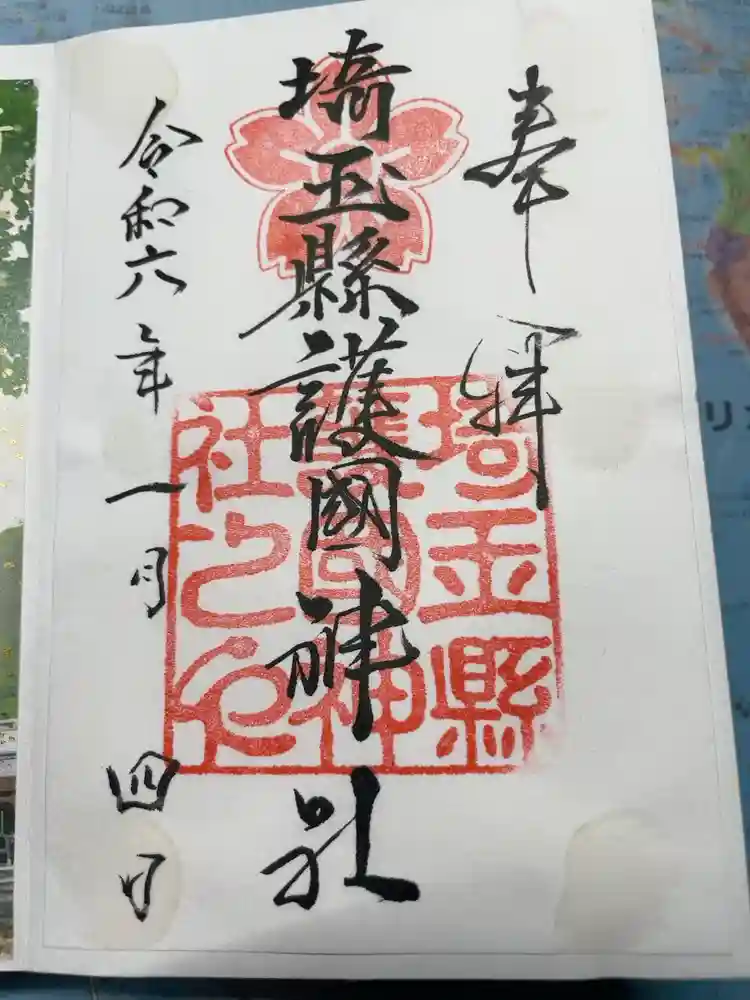 奉拝
埼玉縣護國神社
令和六年一月四日
埼玉縣
護國神
社之印
リ